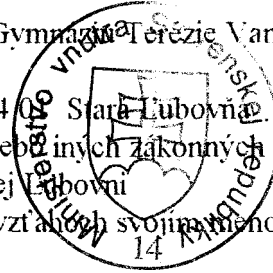 Gymnáziu Terézie Van
Stará Ľubovňa.
iných zákonných
ej Ľubovni
vzťahoch svojím meno
Ministerstvo vnútra Slovenskej republiky
14